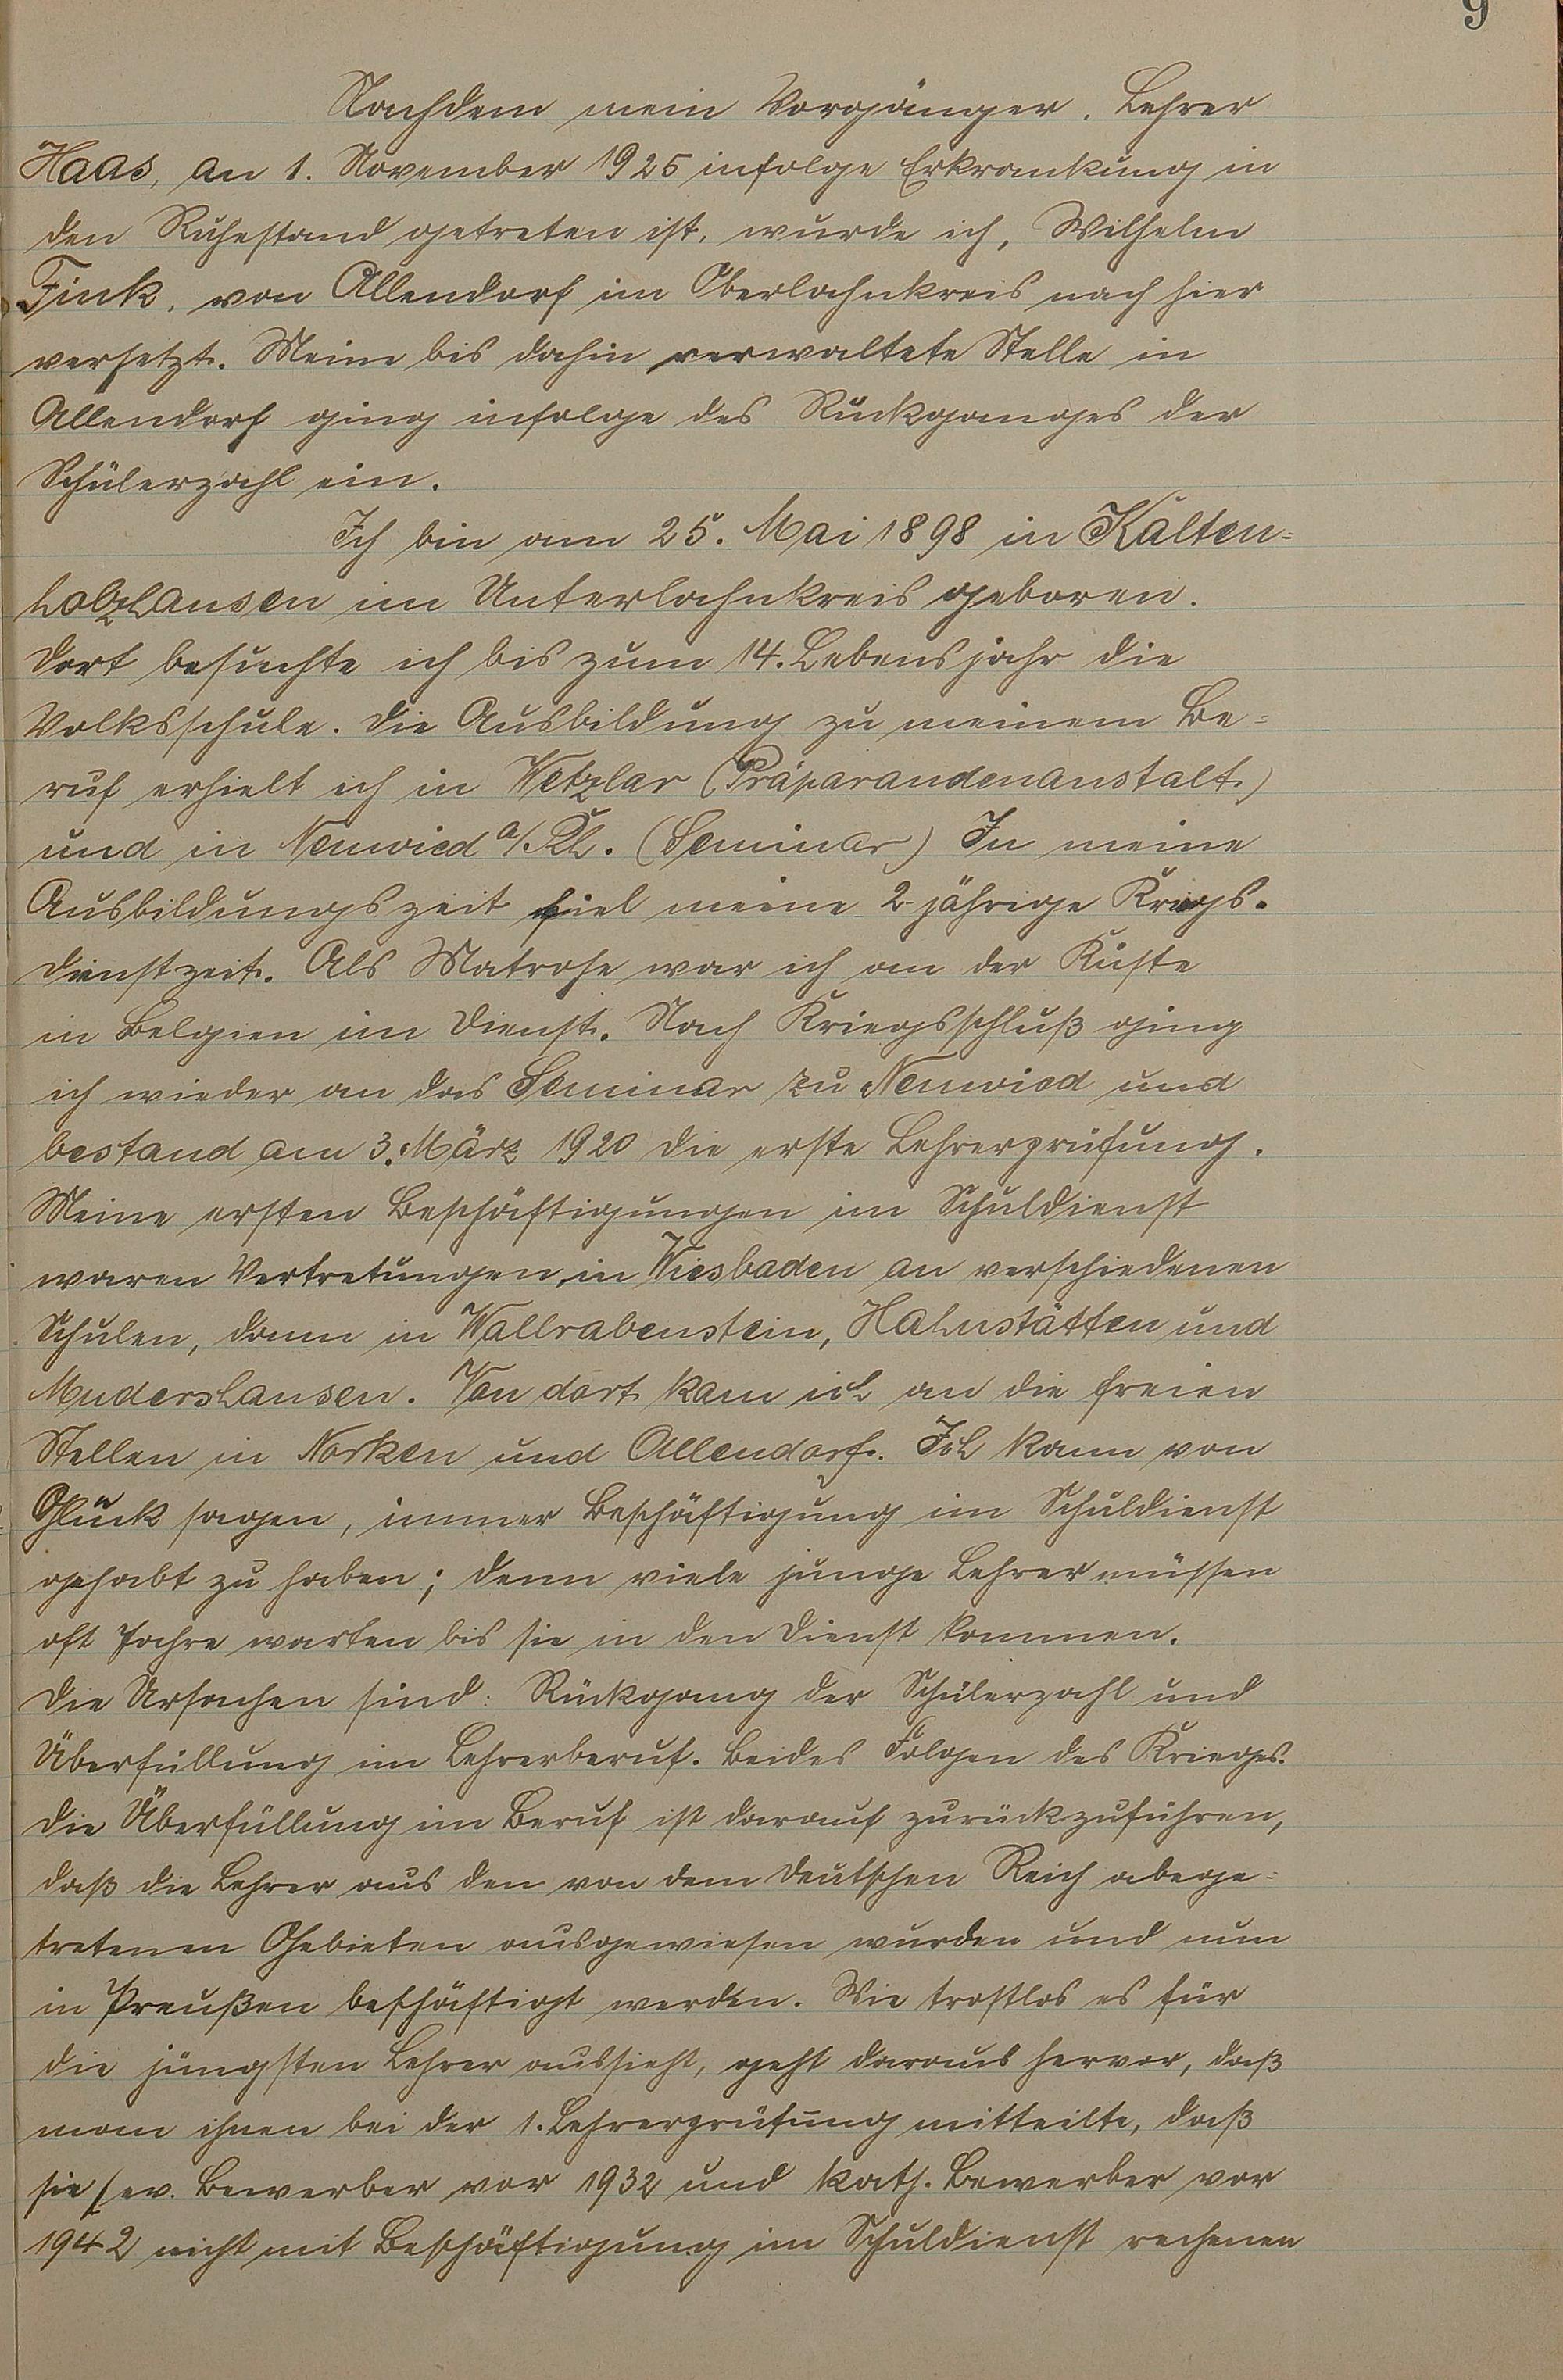 9
Nachdem mein Vorgänger, Lehrer
Haas, an 1. November 1925 infolge Erkrankung in
den Ruhestand getreten ist, wurde ich, Wilhelm
Fink, von Allendorf im Oberlahnkreis nach hier
versetzt. Meine bis dahin verwaltete Stelle in
Allendorf ging infolge des Rückganges der
Schülerzahl ein.
Ich bin am 25. Mai 1898 in Kalten-
holzhausen im Unterlahnkreis geboren.
Dort besuchte ich bis zum 14. Lebensjahr die
Volksschule. Die Ausbildung zu meinem Be-
ruf erhielt ich in Wetzlar (Präparandenanstalt)
und in Neuwied a/Rh. (Seminar) In meine
Ausbildungszeit fiel meine 2-jährige Kriegs-
dienstzeit. Als Matrose war ich an der Küste
in Belgien im Dienst. Nach Kriegsschluß ging
ich wieder an das Seminar zu Neuwied und
bestand am 3. März 1920 die erste Lehrerprüfung.
Meine ersten Beschäftigungen im Schuldienst
waren Vertretungen, in Wiesbaden an verschiedenen
Schulen, dann in Wallrabenstein, Hahnstätten und
Mudershausen. Von dort kam ich an die freien
Stellen in Norken und Allendorf. Ich kann von
Glück sagen, immer Beschäftigung im Schuldienst
gehabt zu haben; denn viele junge Lehrer müssen
oft Jahre warten bis sie in den Dienst kommen.
Die Ursachen sind: Rückgang der Schülerzahl und
Überfüllung im Lehrerberuf. Beides Folgen des Krieges.
Die Überfüllung im Beruf ist darauf zurückzuführen,
daß die Lehrer aus den von dem Deutschen Reich abege-
tretenen Gebieten ausgewiesen wurden und nun
in Preußen beschäftigt werden. Wie trostlos es für
die jüngsten Lehrer aussieht, geht daraus hervor, daß
man ihnen bei der 1. Lehrerprüfung mitteilte, daß
sie (ev. Bewerber vor 1932 und kath. Bewerber vor
1942 nicht mit Beschäftigung im Schuldienst rechenen